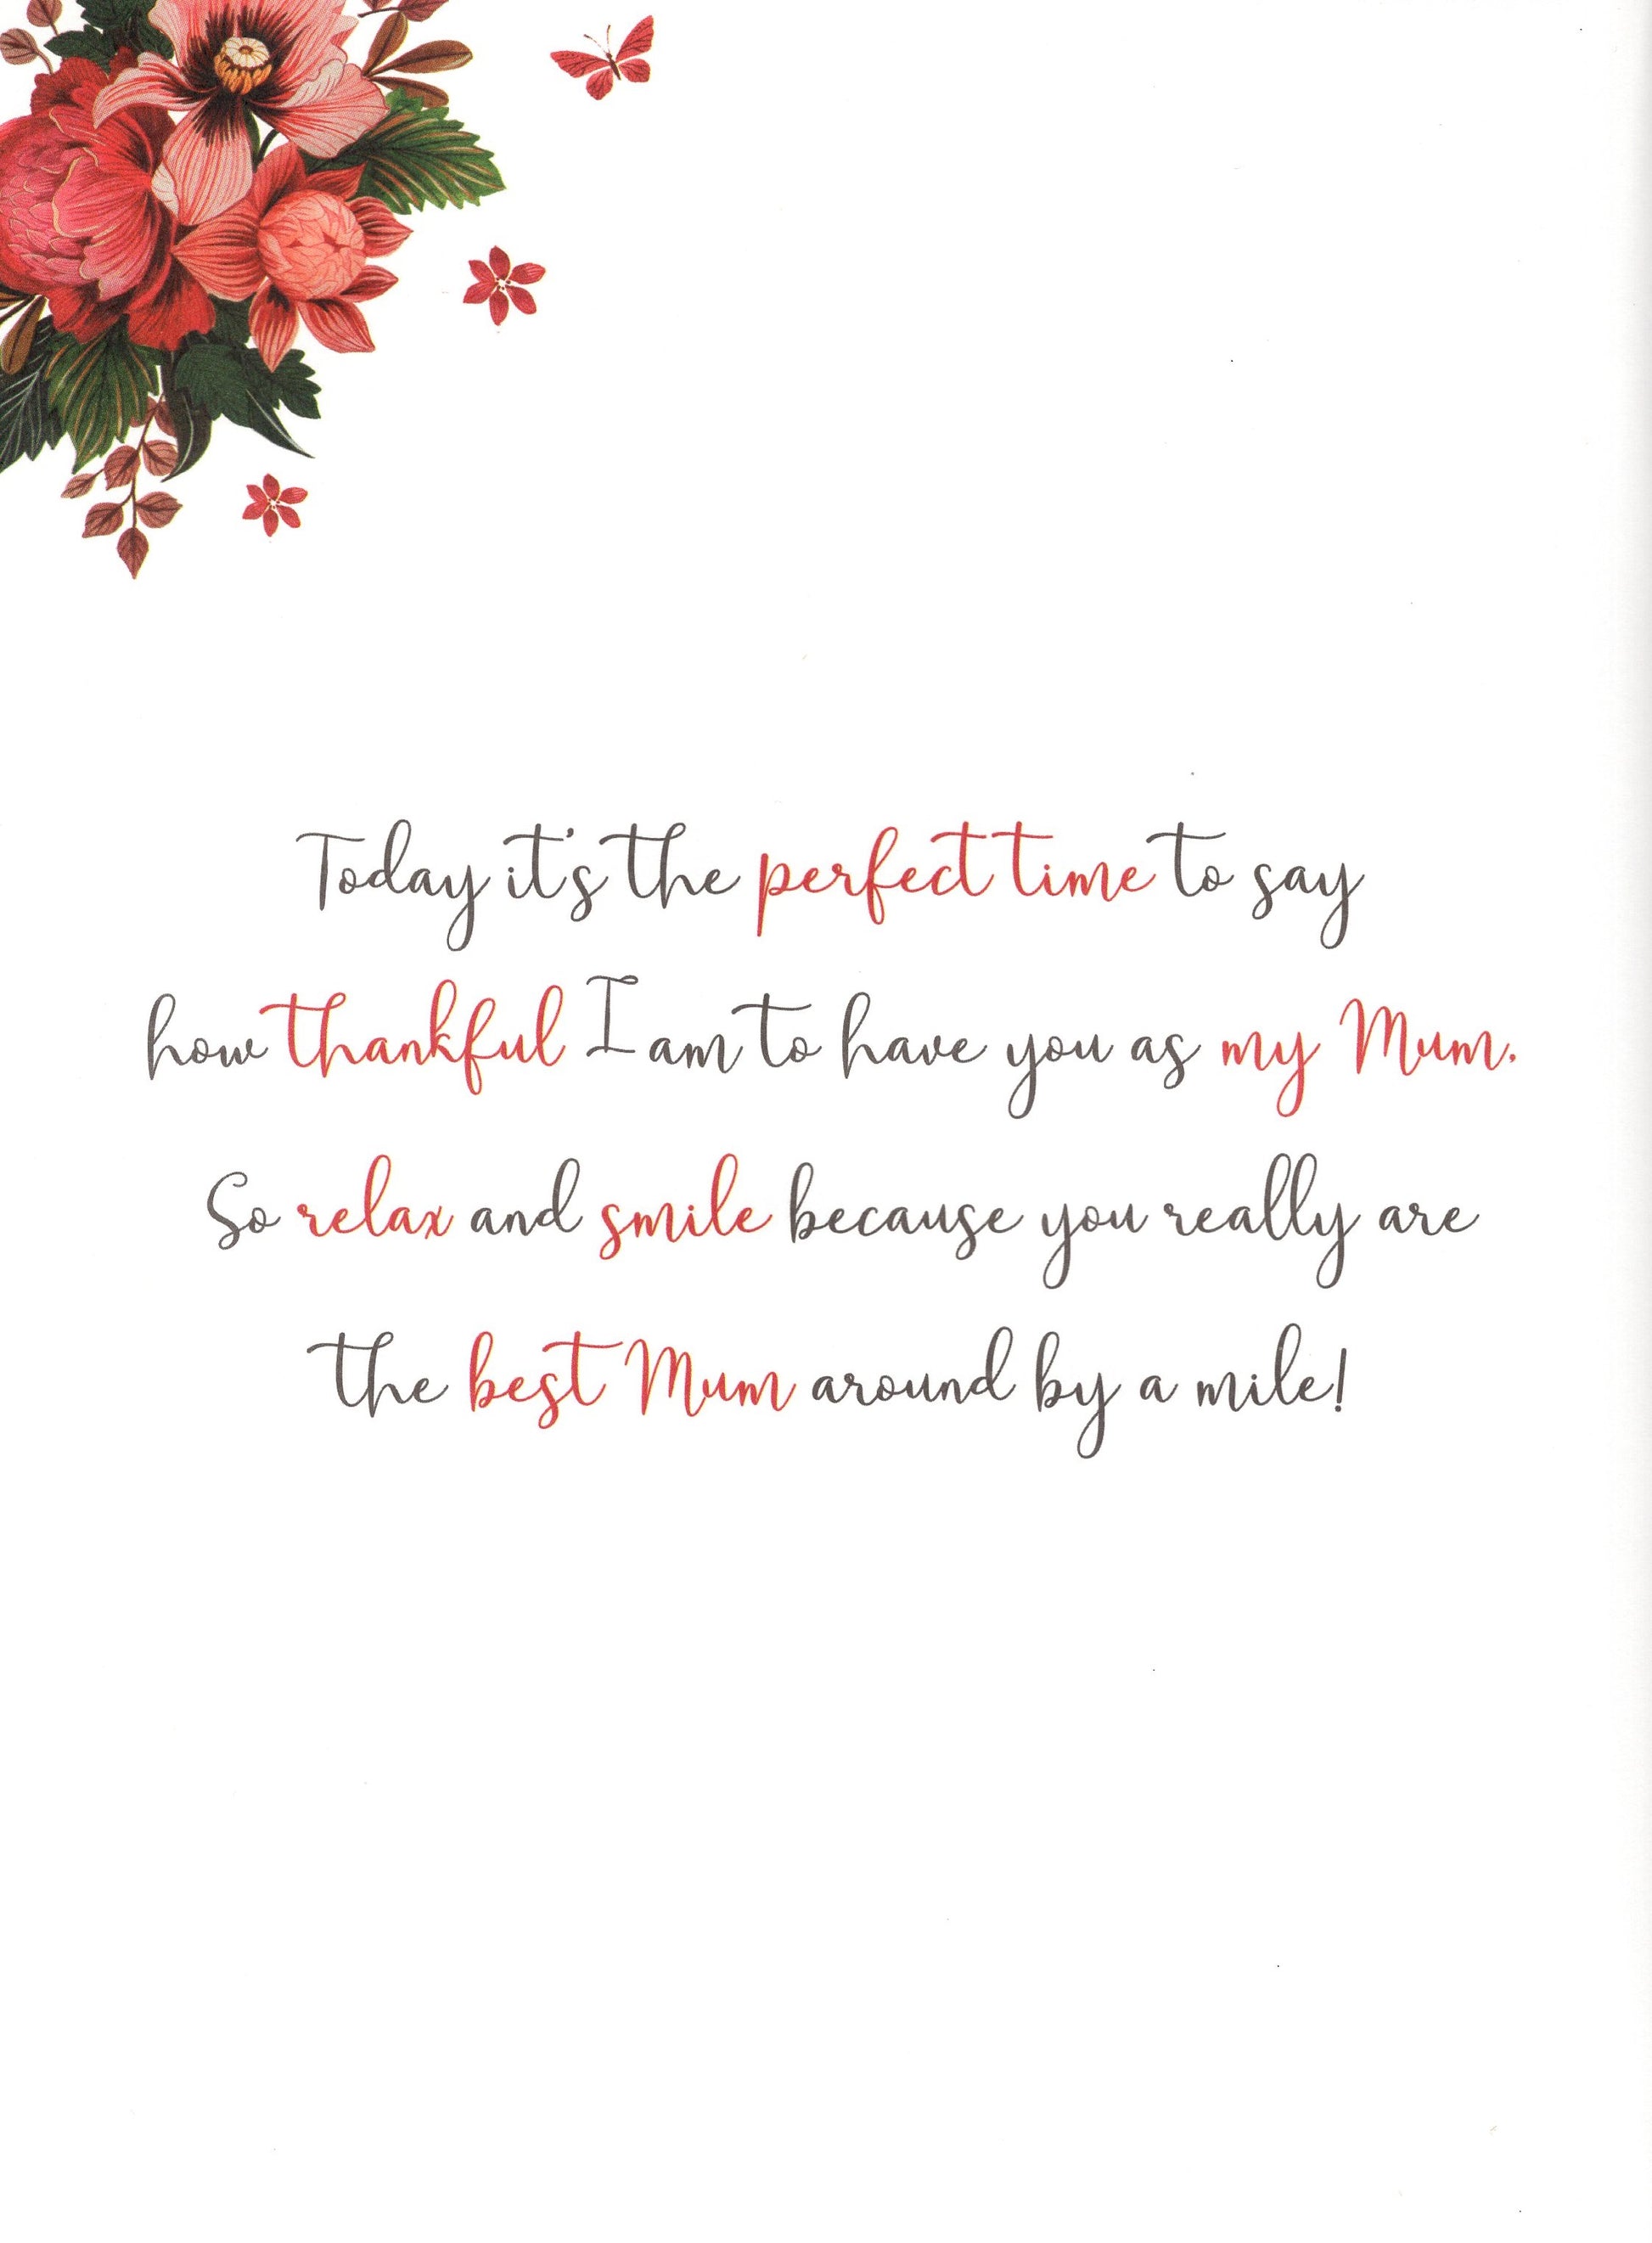 Today it's the perfect time to say
how thankful I am to have you as my Mum.
So relax and smile because you really are
the best Mum around by a mile!